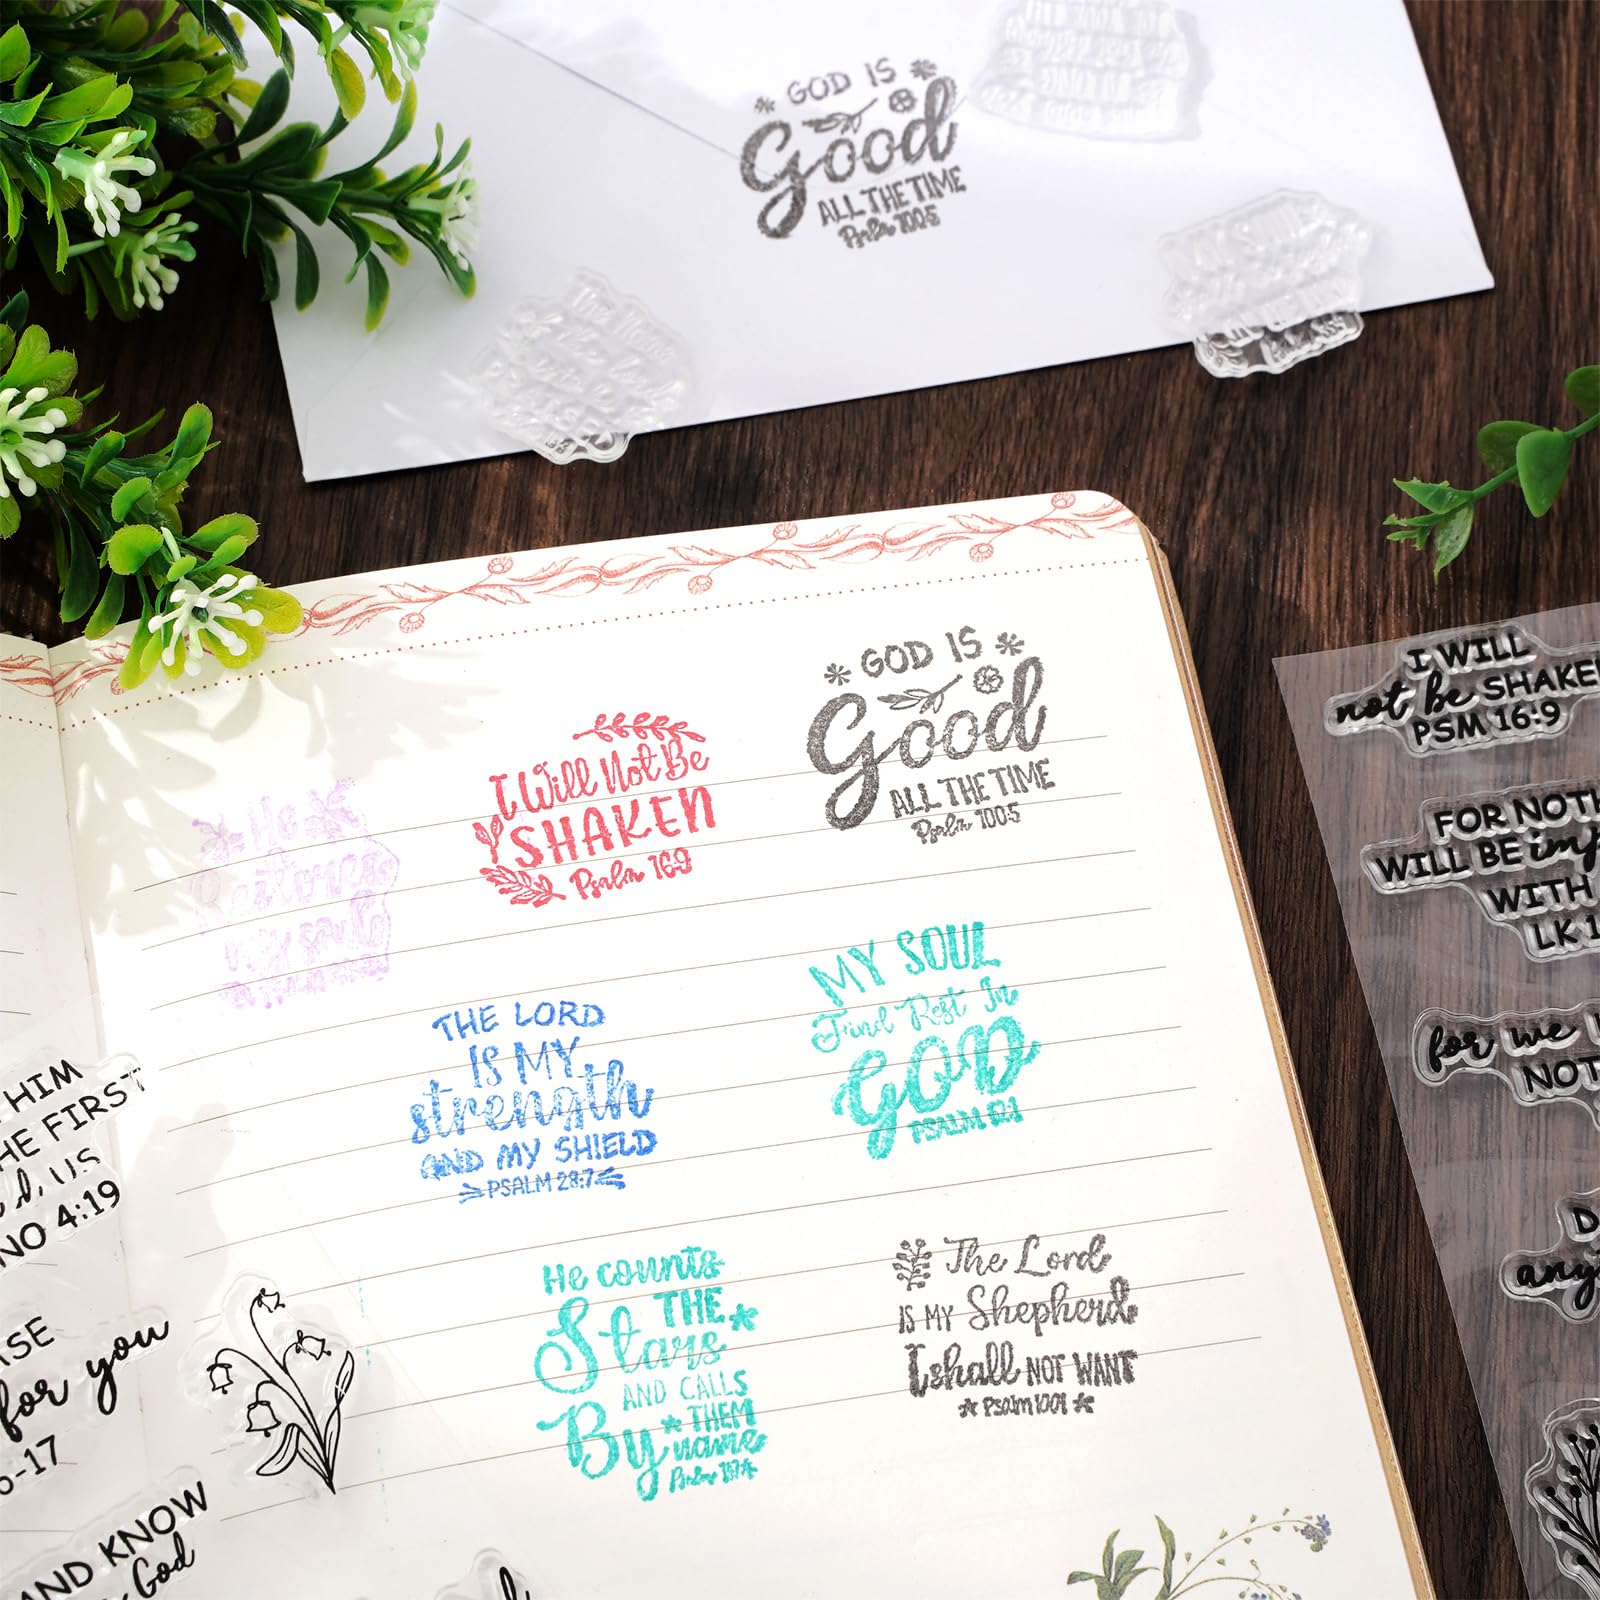 GOD IS
Good
ALL THE TIME
Psalm 100:5
GOD IS
Good
ALL THE TIME
Psalm 100:5
I Will Not Be
SHAKEN
Psalm 16:9
He
Restores
my soul
MY SOUL
Find Rest In
GOD
PSALM 62:1
THE LORD
IS MY
strength
AND MY SHIELD
PSALM 28:7
He counts
THE
Stars
AND CALLS
THEM
By name
Psalm
The Lord
IS MY Shepherd
I shall NOT WANT
Psalm
I WILL
not be SHAKEN
PSM 16:9
FOR NOTH
WILL BE imp
WITH
LK 1
for we
NOT
D
any
HIM
HE FIRST
d, US
NO 4:19
ASE
for you
6-17
AND KNOW
God